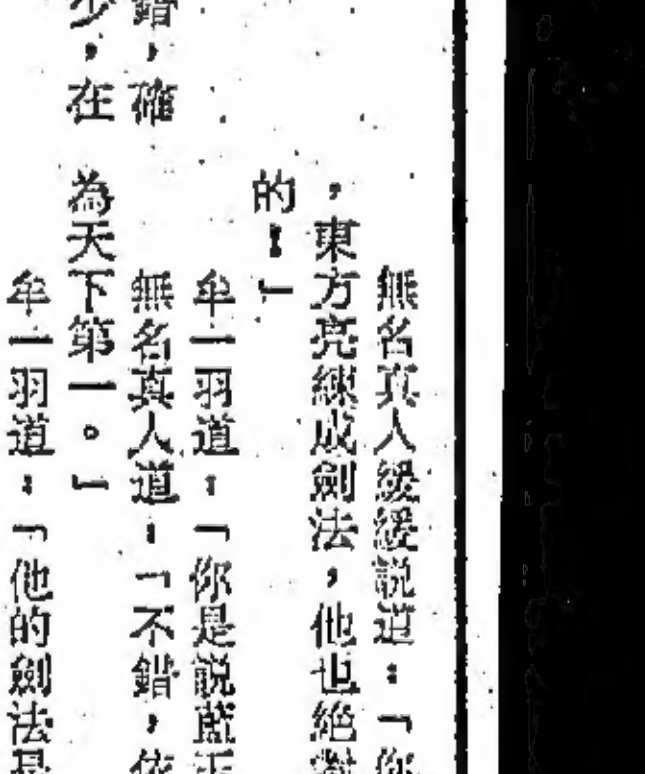 無名真人緩緩説道：「你
，東方亮練成劍法，他也絕對
的！」
牟一羽道：「你是説藍玉
無名真人道：「不錯，依
為天下第一。」
牟一羽道：「他的劍法是
錯，確
少，在